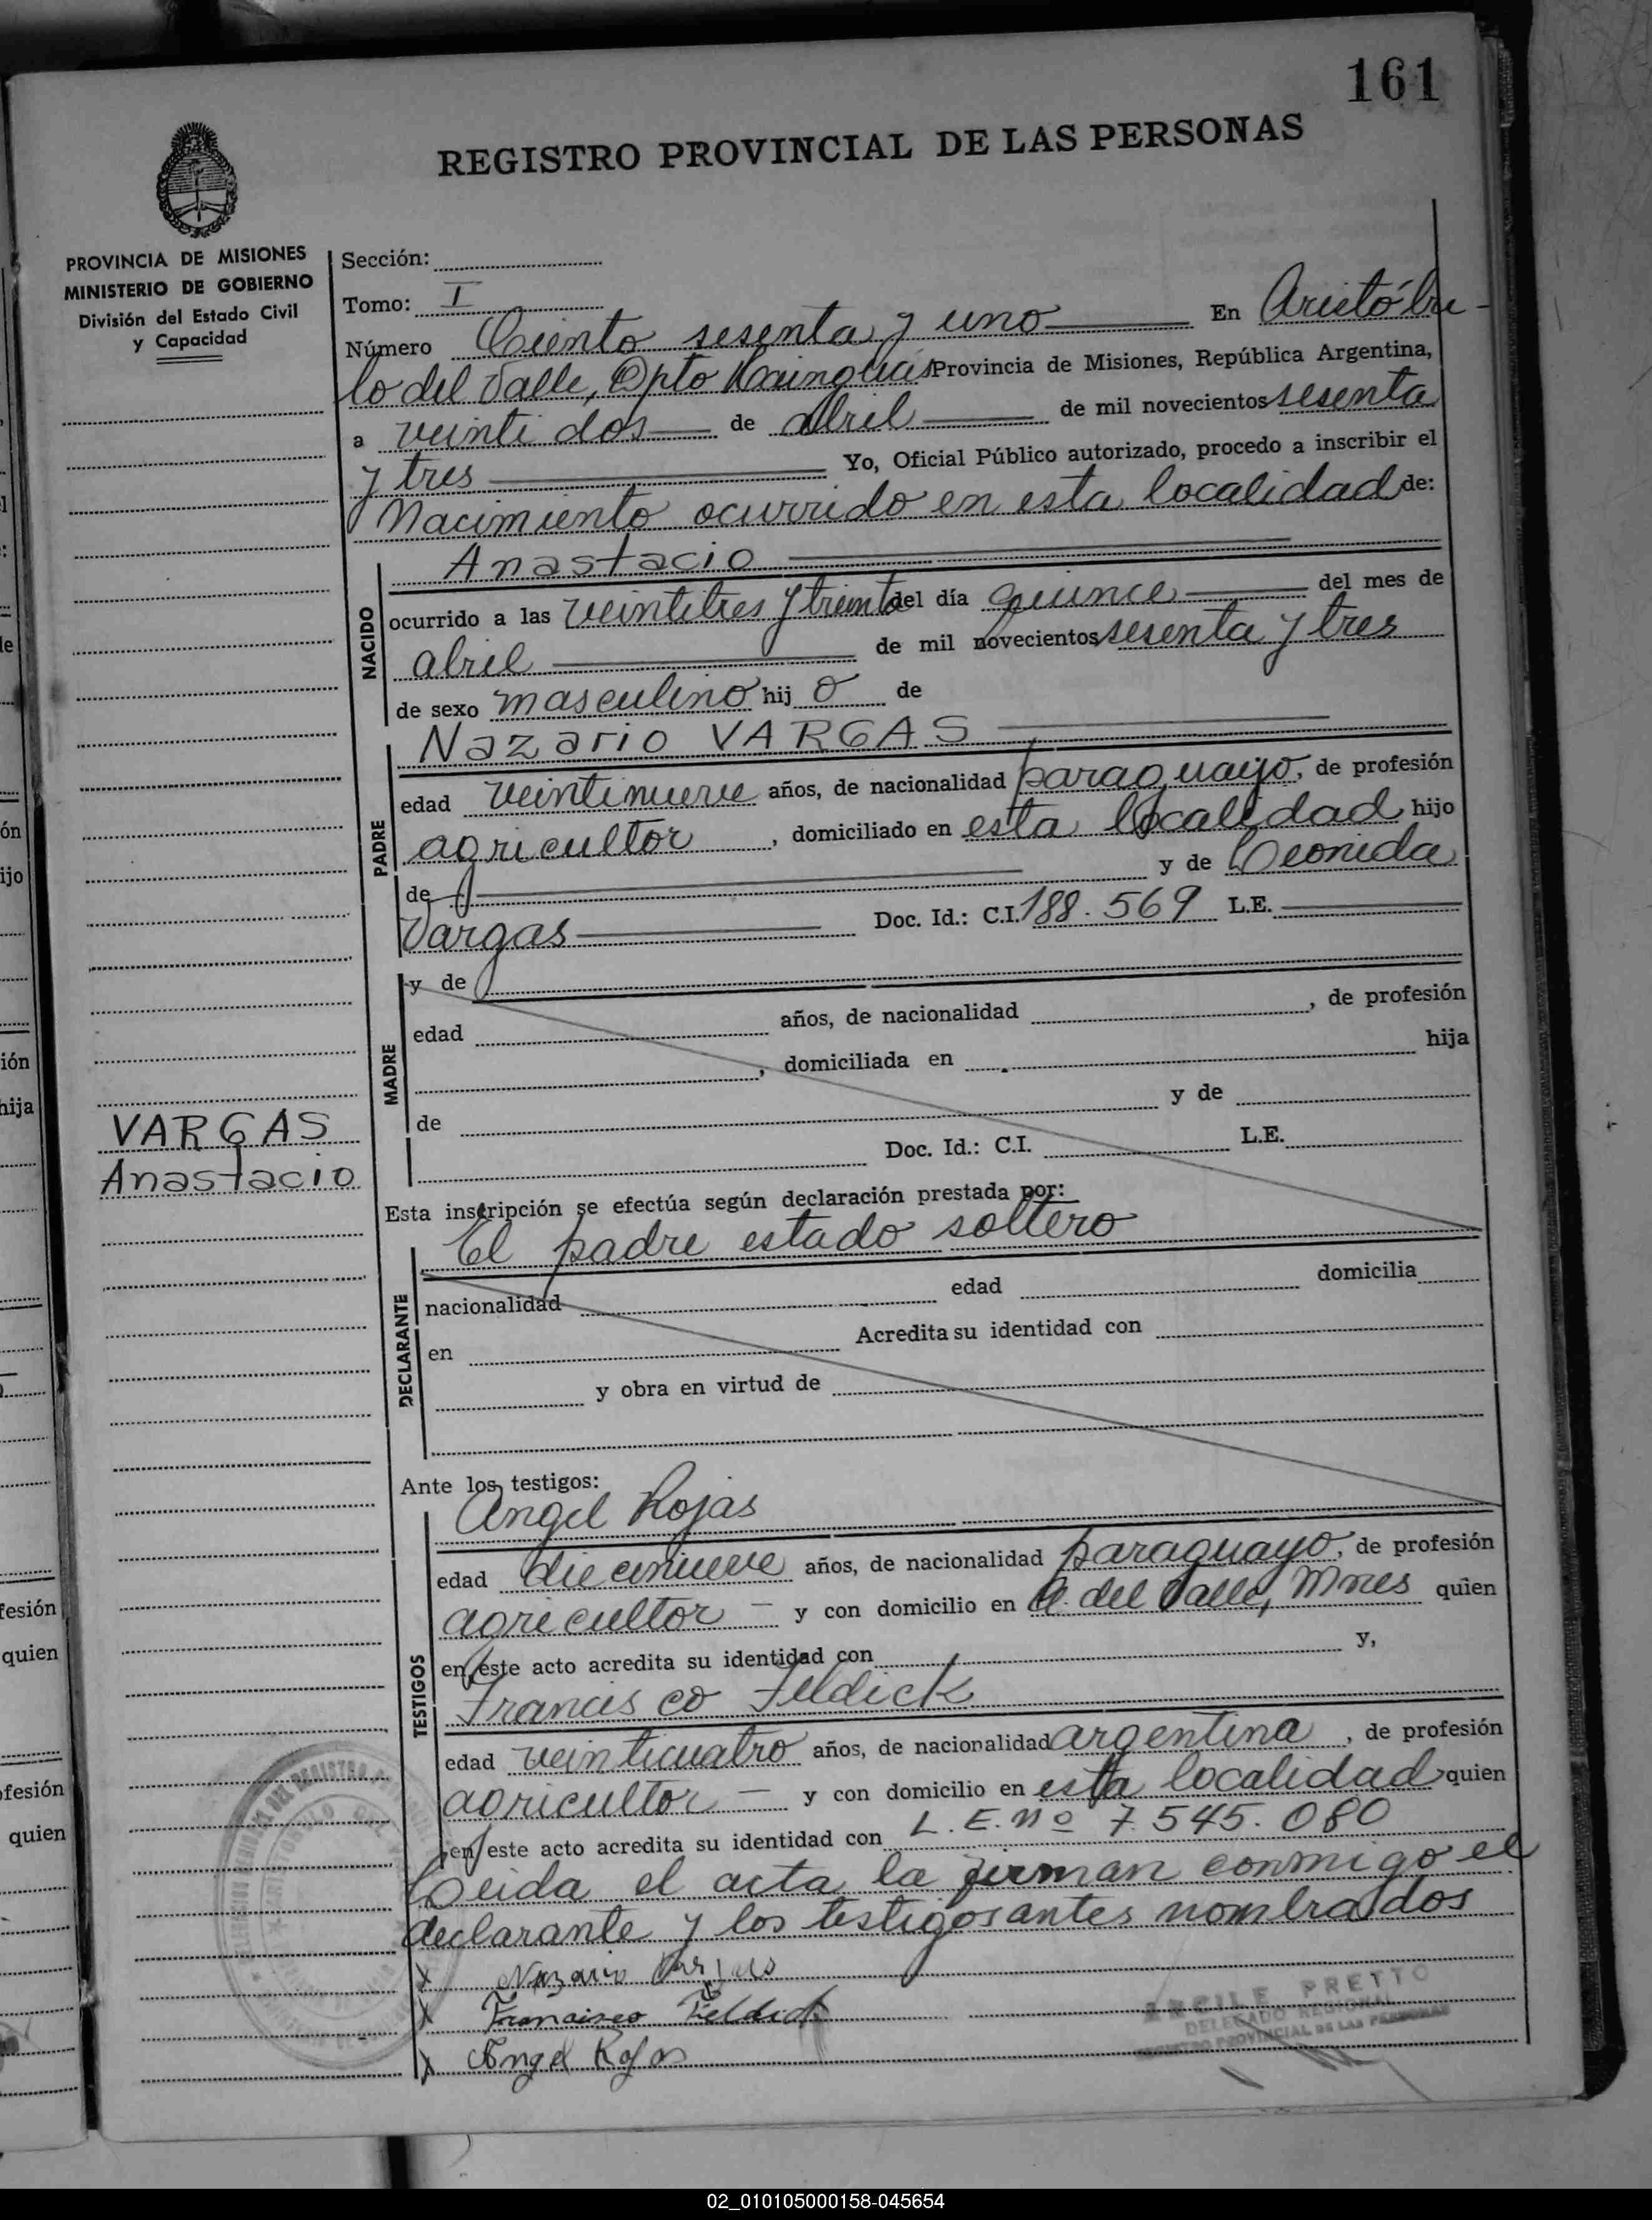 161
REGISTRO PROVINCIAL DE LAS PERSONAS
PROVINCIA DE MISIONES
MINISTERIO DE GOBIERNO
División del Estado Civil
y Capacidad
Sección:
Tomo: I
Número Ciento sesenta y uno En Aristóbu-
lo del Valle, Dpto Kainguás Provincia de Misiones, República Argentina,
a veinti dos de abril de mil novecientos sesenta
y tres Yo, Oficial Público autorizado, procedo a inscribir el
Nacimiento ocurrido en esta localidad de:
NACIDO
Anastacio
ocurrido a las veintitres y treinta del día quince del mes de
abril de mil novecientos sesenta y tres
de sexo masculino hij o de
PADRE
Nazario VARGAS
edad veintinueve años, de nacionalidad paraguayo, de profesión
agricultor, domiciliado en esta localidad hijo
de y de Leonida
Vargas Doc. Id.: C.I. 188.569 L.E.
MADRE
y de
edad años, de nacionalidad , de profesión
, domiciliada en hija
de y de
Doc. Id.: C.I. L.E.
VARGAS
Anastacio
Esta inscripción se efectúa según declaración prestada por:
El padre estado soltero
DECLARANTE
nacionalidad edad domicilia
en Acredita su identidad con
y obra en virtud de
Ante los testigos:
TESTIGOS
Angel Rojas
edad diecinueve años, de nacionalidad paraguayo, de profesión
agricultor – y con domicilio en A. del Valle, Mnes quien
en este acto acredita su identidad con y,
Francisco Feldick
edad veinticuatro años, de nacionalidad argentina, de profesión
agricultor – y con domicilio en esta localidad quien
en este acto acredita su identidad con L.E. nº 7.545.080
Leida el acta la firman conmigo el
declarante y los testigos antes nombrados
x Nazario Vargas
x Francisco Feldick
x Angel Rojas
PRETTO
DELEGADO REGIONAL
REGISTRO PROVINCIAL DE LAS PERSONAS
02_010105000158-045654